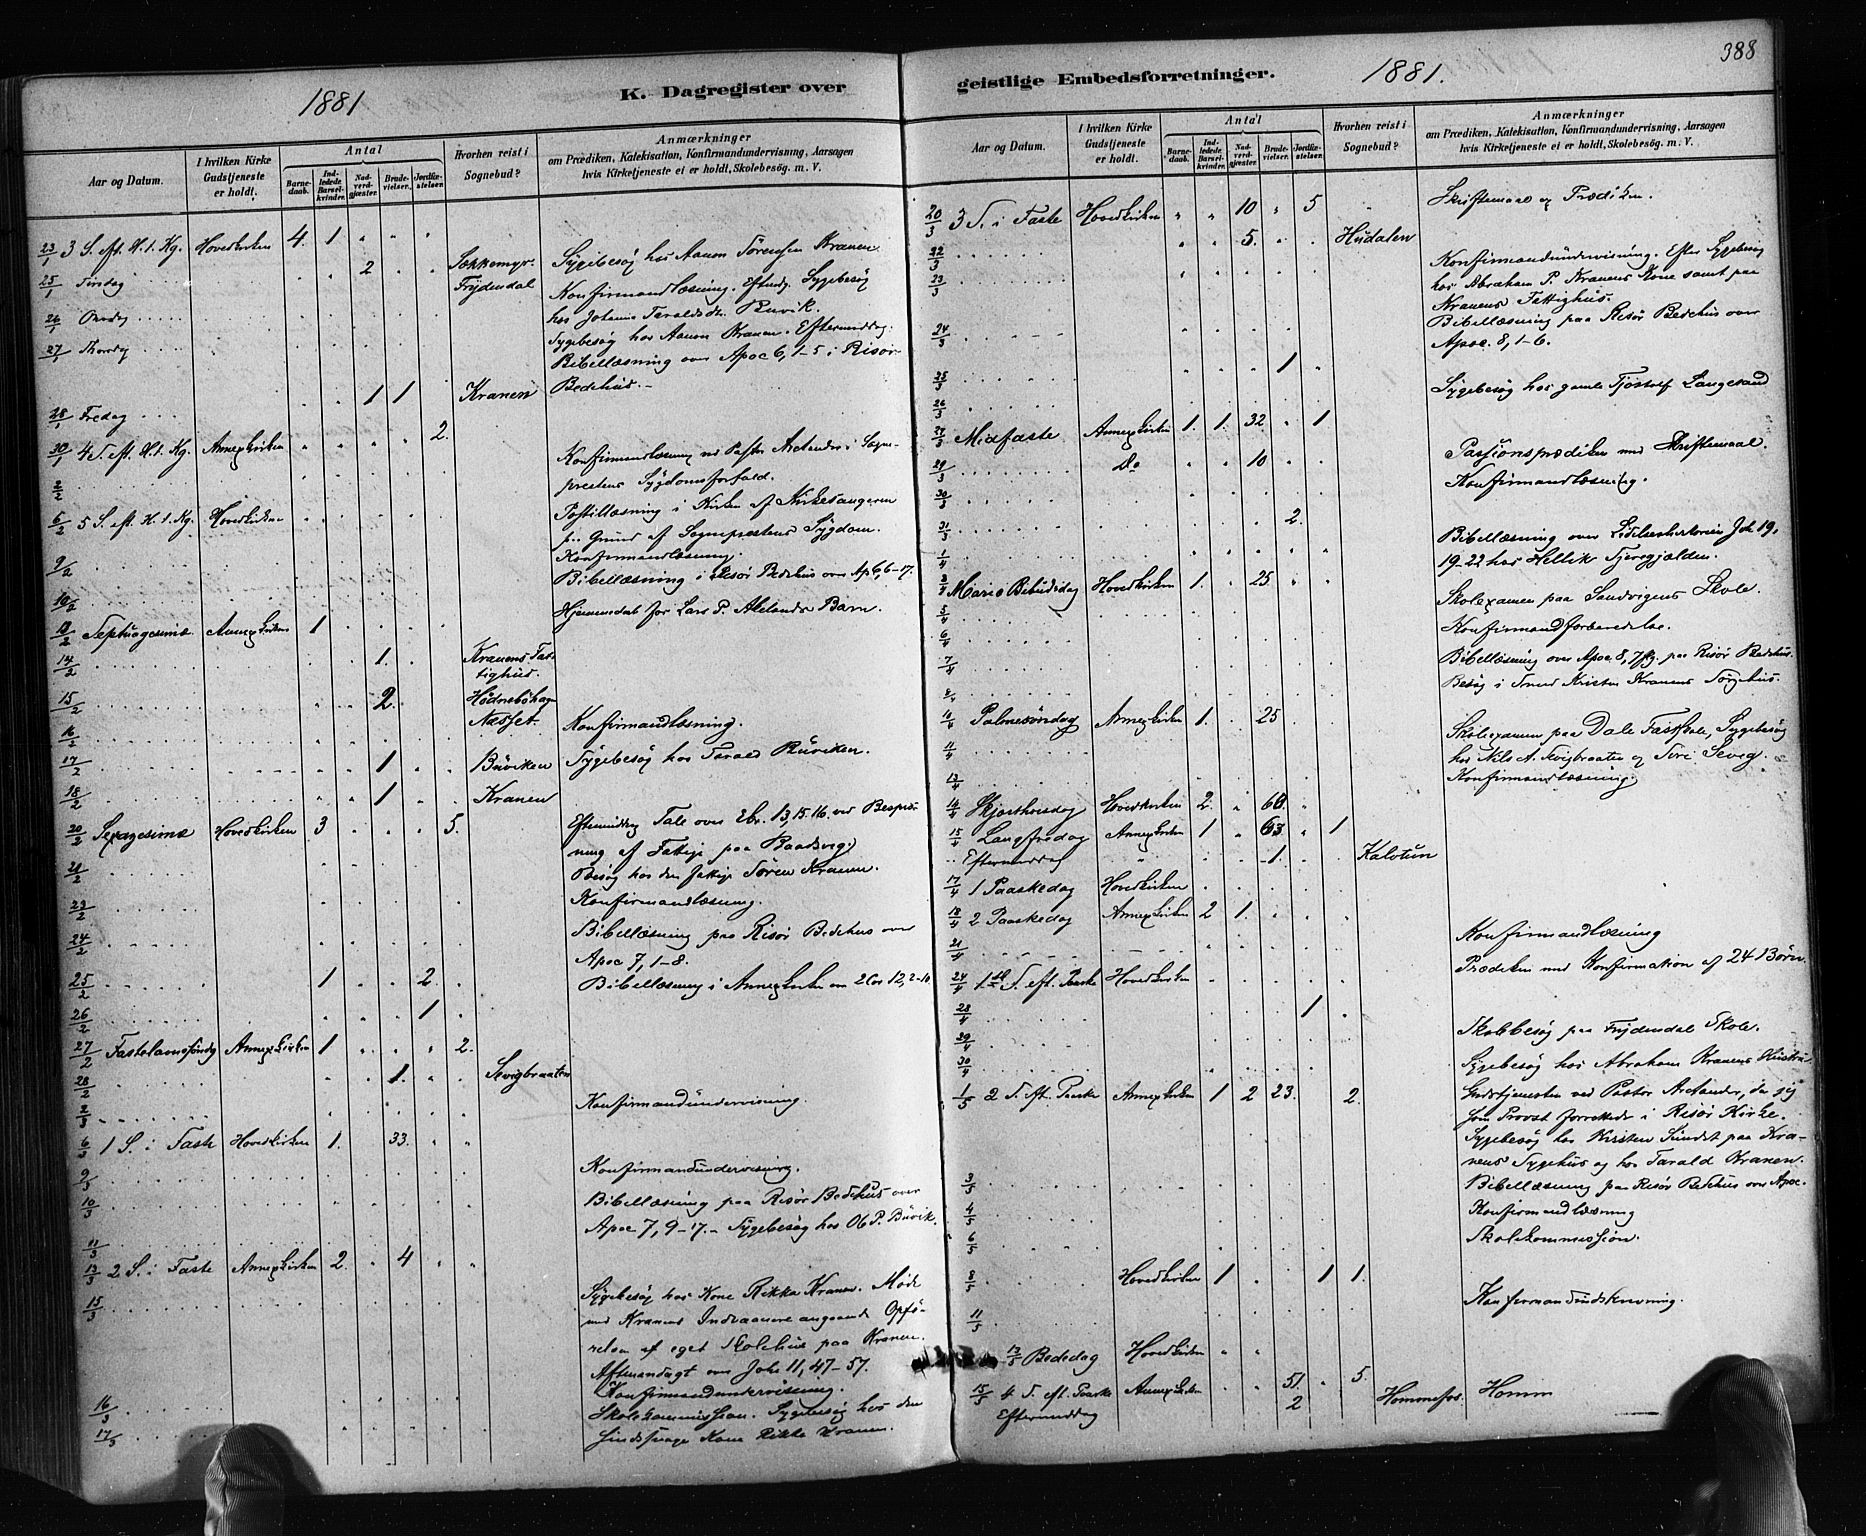 1881
K. Dagregister over
Anmærkninger
Antal
I hvilken Kirke
Gudstjeneste
er holdt.
Aar og Datum.
Barne-
daab.
Ind-
ledede
Barsel-
kvinder.
Nad-
verd-
gjæster.
Brude-
vielser.
Jordfæ-
stelser.
Hvorhen reist i
Sognebud?
om Prædiken, Katekisation, Konfirmandundervisning, Aarsagen
hvis Kirketjeneste ei er holdt, Skolebesøg. m. V.
23/1 3 S. eft. H. 3. Kg. Hovedkirken 4. 1
25/1 Tirsdag 2 Sækkemyr. Sygebesøg hos Aanon Sörensen Kranen
Frydendal Konfirmandlæsning. Eftmdg. Sygebesøg
26/1 Onsdag hos Johanne Taraldsdt. Buvik.
27/1 Thorsdg Sygebesøg hos Aanon Kranen. Eftermiddag:
Bibellæsning over Apoc 6, 1-5 i Risør
28/1 Fredag 1 1 Kranen Bedehus.
30/1 4 S. eft. H. 3. Kg. Annexkirken 2.
2/2 Konfirmandlæsning ved Pastor Arctander i Sogne-
prestens Sygdomsforfald.
6/2 5 S. eft. H. 3. Kg. Hovedkirken Postillæsning i Kirken af Kirkesangeren
paa Grund af Sognepræstens Sygdom.
9/2 Konfirmandlæsning.
10/2 Bibellæsning i Risør Bedehus over Ap 6, 6-17.
13/2 Septuagesima Annexkirken 1 Hjemmedøbt for Lars P. Akelands Barn.
14/2 1. Kranens Fat-
tighus.
15/2 2. Hødnebøhagen
Næsset.
16/2 Konfirmandlæsning.
17/2 1 Büviken Sygebesøg hos Tarald Büviken.
18/2 1 Kranen
20/2 Sexagesima Hovedkirken 3 5. Eftermiddag Tale over Ebr. 13, 15. 16. ved Bespis-
ning af Fattige paa Baadsvig.
21/2 Besøg hos den fattige Sören Kranen.
23/2 Konfirmandlæsning.
24/2 Bibellæsning paa Risør Bedehus over
Apoc 7, 1-8.
25/2 1 2. Bibellæsning i Annexkirken over 2 Cor 12, 2-10
26/2 1
27/2 Fastelavnssöndg Annexkirken 1 2.
28/2 1. Sevigbraaten
2/3 Konfirmandundervisning.
6/3 1 S. i Faste Hovedkirken 1. 33.
9/3 Konfirmandundervisning.
10/3 Bibellæsning paa Risør Bedehus over
Apoc 7, 9-17. - Sygebesøg hos Ob P. Büvik.
11/3
13/3 2 S. i Faste Annexkirken 2. 4
15/3 Sygebesøg hos Kone Rikka Kranen. Møde
med Kranens Indvaanere angaaende Opfö-
relsen af eget Skolehus paa Kranen.
Aftenandagt over Joh. 11, 47-57.
16/3 Konfirmandundervisning.
17/3 Skolekommission. Sygebesøg hos den
sindssvage Kone Rikke Kranen.
388
geistlige Embedsforretninger.
1881.
Aar og Datum.
I hvilken Kirke
Gudstjeneste
er holdt.
Antal
Barne-
daab.
Ind-
ledede
Barsel-
kvinder.
Nad-
verd-
gjæster.
Brude-
vielser.
Jordfæ-
stelser.
Hvorhen reist i
Sognebud?
Anmærkninger
om Prædiken, Katekisation, Konfirmandundervisning, Aarsagen
hvis Kirketjeneste ei er holdt, Skolebesøg. m. V.
20/3 3 S. i Faste Hovedkirken 10 5 Skriftemaal og Prædiken.
22/3 5. Hüdalen
23/3 Konfirmandundervisning. Efter Sygebesøg
hos Abraham P. Kranens Kone samt paa
Kranens Fattighus.
24/3 Bibellæsning paa Risør Bedehus over
Apoc. 8, 1-6.
25/3 1 Sygebesøg hos gamle Tjöstolf Langesand
26/3
27/3 Midfaste Annexkirken 1. 1. 32 1
29/3 Do 10 Passionsprædiken med Skriftemaal.
30/3 Konfirmandlæsning.
31/3 2.
1/4 Bibellæsning over Lidelseshistorien Joh 19,
19-22 hos Hellik Tjernfjælden.
3/4 Mariæ Bebudelsdag Hovedkirken 1. 25
5/4 Skolexamen paa Sandvigens Skole.
6/4 Konfirmandforberedelse.
7/4 Bibellæsning over Apoc 8, 7 flg. paa Risør Bedehus.
8/4 Besøg i Kristen Kranens Sørgehus.
10/4 Palmesöndag Annexkirken 1. 25
11/4 Skolexamen paa Dale Fastskole, Sygebesøg
hos Nils A. Sevigbraaten og Tore Sevig.
13/4 Konfirmandlæsning.
14/4 Skjærthorsdag Hovedkirken 2. 60.
15/4 Langfredag Annexkirken 1 63 1
Eftermiddag 1. Kalstun
17/4 1 Paaskedag Hovedkirken
18/4 2 Paaskedag Annexkirken 2 1.
21/4 Konfirmandlæsning
24/4 1ste S. eft. Paaske Hovedkirken Prædiken med Konfirmation af 24 Börn.
28/4 1
29/4 Skolebesøg paa Frydendal Skole.
30/4 Sygebesøg hos Abraham Kranens Hustru
1/5 2 S. eft. Paaske Annexkirken 1 2 23. 2. Gudstjenesten ved Pastor Arctander, da jeg
som Provst forrettede i Risør Kirke.
Sygebesøg hos Kirsten Sundet paa Kra-
nens Sygehus og hos Tarald Kranen.
3/5 Bibellæsning paa Risør Bedehus over Apoc.
4/5 Konfirmandlæsning
6/5 Skolekommission.
8/5 Hovedkirken 1 1 1.
11/5 Konfirmandindskrivning.
13/5 Bededag Hovedkirken
15/5 4 S. eft. Paaske Annexkirken 51. 5.
Eftermiddag 2 Hommefos. Homm